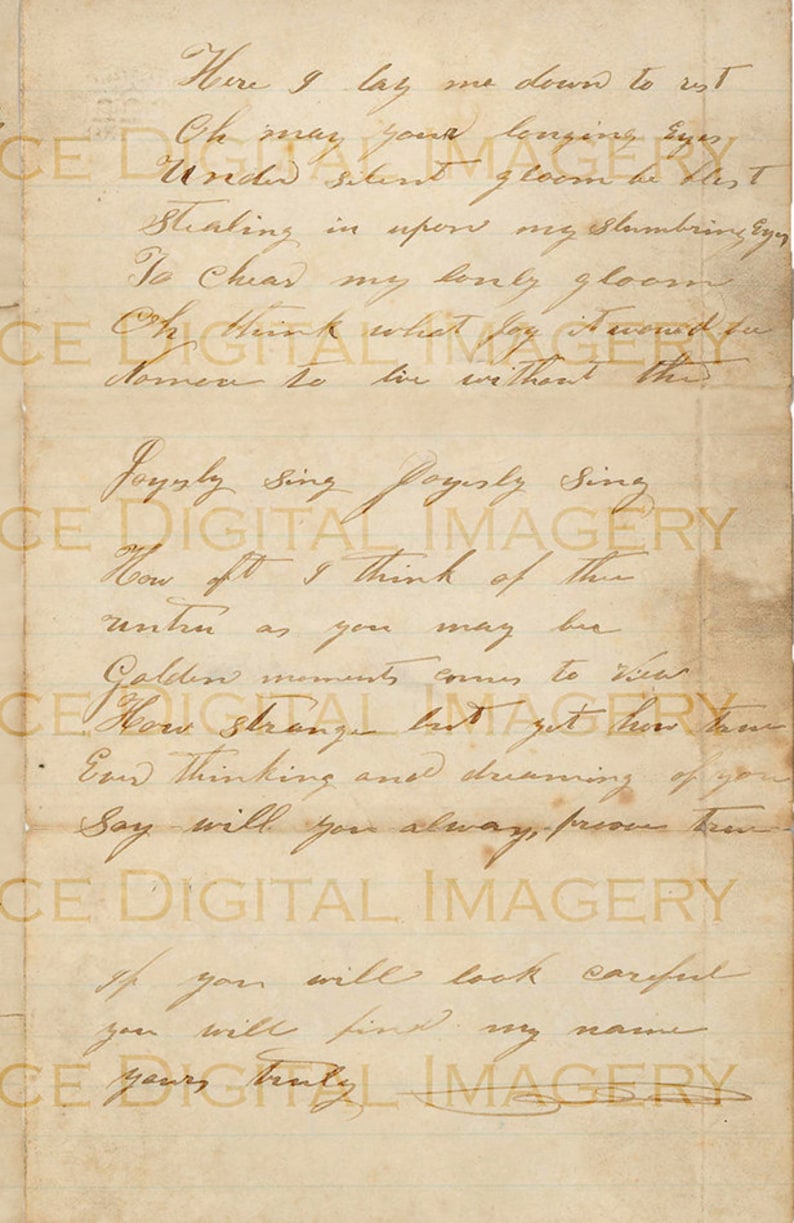 Here I lay me down to rest
Oh may your longing Eyes
Under silent gloom be blest
Stealing in upon my slumbring Eyes
To Chear my lonly gloom
Oh think what Joy it would be
to live without the
Joyisly sing Joyisly Sing
How oft I think of thee
untru as you may bee
Golden moments comes to View
How strange but yet how true
Ever thinking and dreaming of you
Say will you always proove true
if you will look careful
you will find my name
yours truly
CE DIGITAL IMAGERY
CE DIGITAL IMAGERY
CE DIGITAL IMAGERY
CE DIGITAL IMAGERY
CE DIGITAL IMAGERY
CE DIGITAL IMAGERY